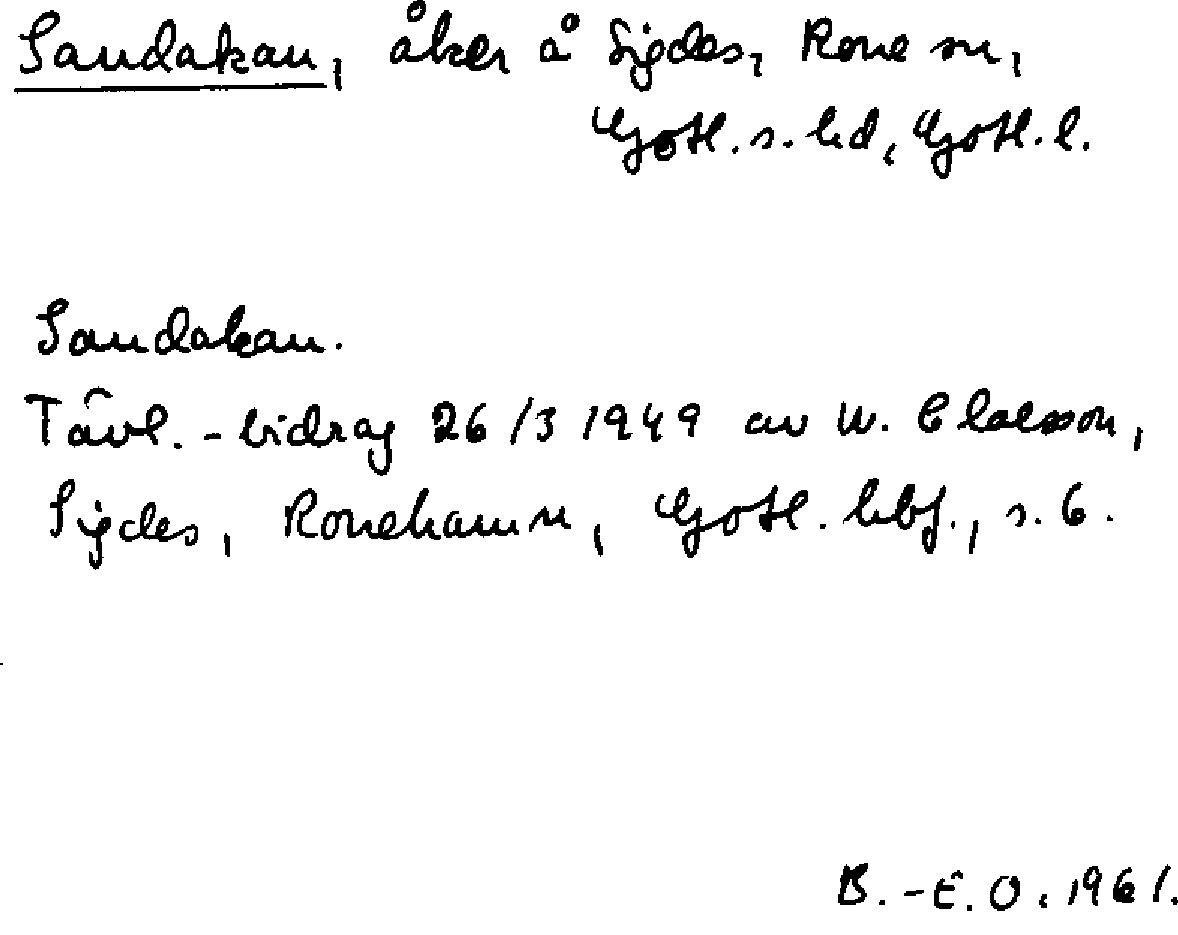 Sandakan, åker å Sigdes, Rone sn,
Gotl. s. hd, Gotl. l.
Sandakan.
Tävl.-bidrag 26/3 1949 av W. Claesson,
Sigdes, Ronehamn, Gotl. hbf., s. 6.
B.-E.O. 1961.